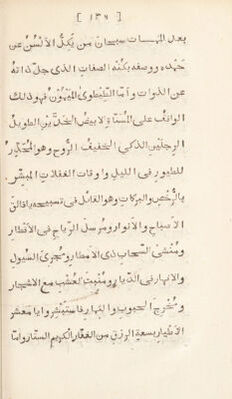 [ ١٣٩ ]
بعد المهمات سبحان من تكلّ الألسن عن
حمده ووصفه بكنه الصفات الذي جلّ ذاته
عن الذوات وأمّا الطيطوى الميمون فهو ذلك
الواقف على المسنّاة الابيض الخدّين الطويل
الرجلين الذكي الخفيف الرّوح وهو المحذّر
للطيور في الليل واوقات الغفلات المبشّر
بالرُّخص والبركات وهو القائل في تسبيحه يا فالق
الأصباح والأنوار ومرسل الرّياح في الأقطار
ومنشئ السّحاب ذى الأمطار ومجرى السّيول
والانهار في الدّيار ومنبت العشب مع الاشجار
ومخرج الحبوب والثمار فاستبشروا يا معشر
الأطيار بسعة الرزق من الغفّار الكريم الستار وامّا